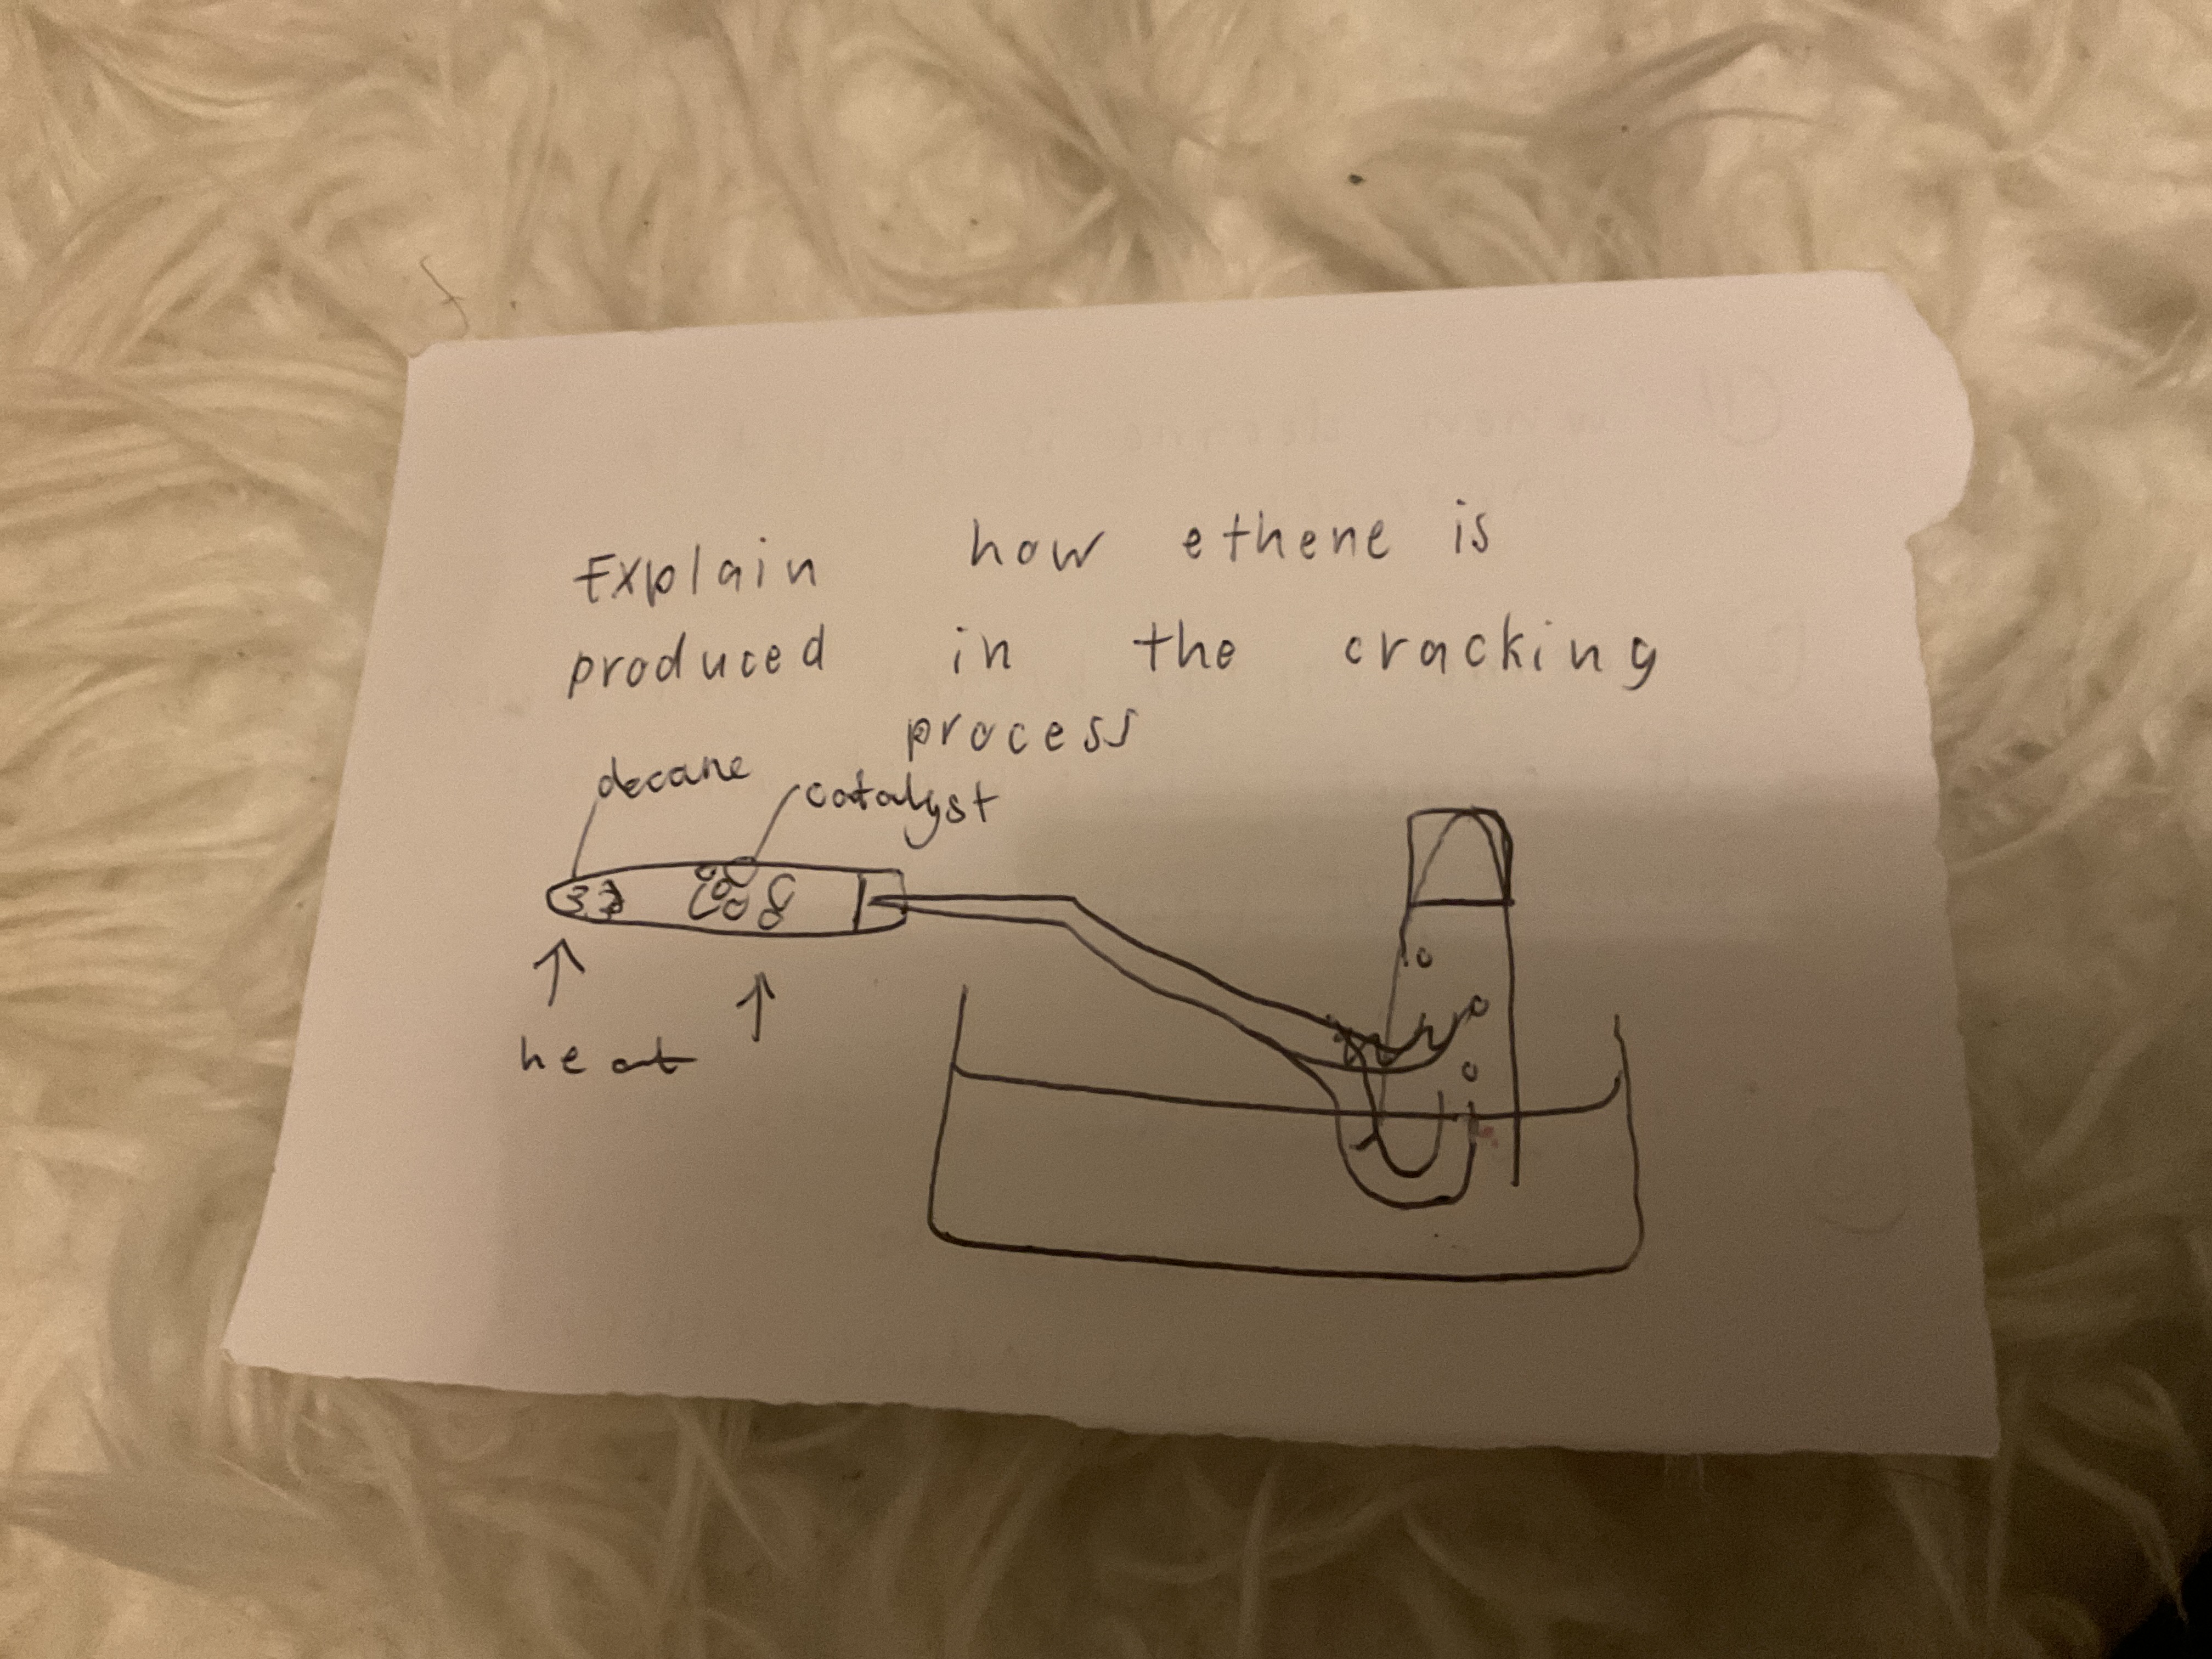 Explain how ethene is
produced in the cracking
process
decane
catalyst
heat